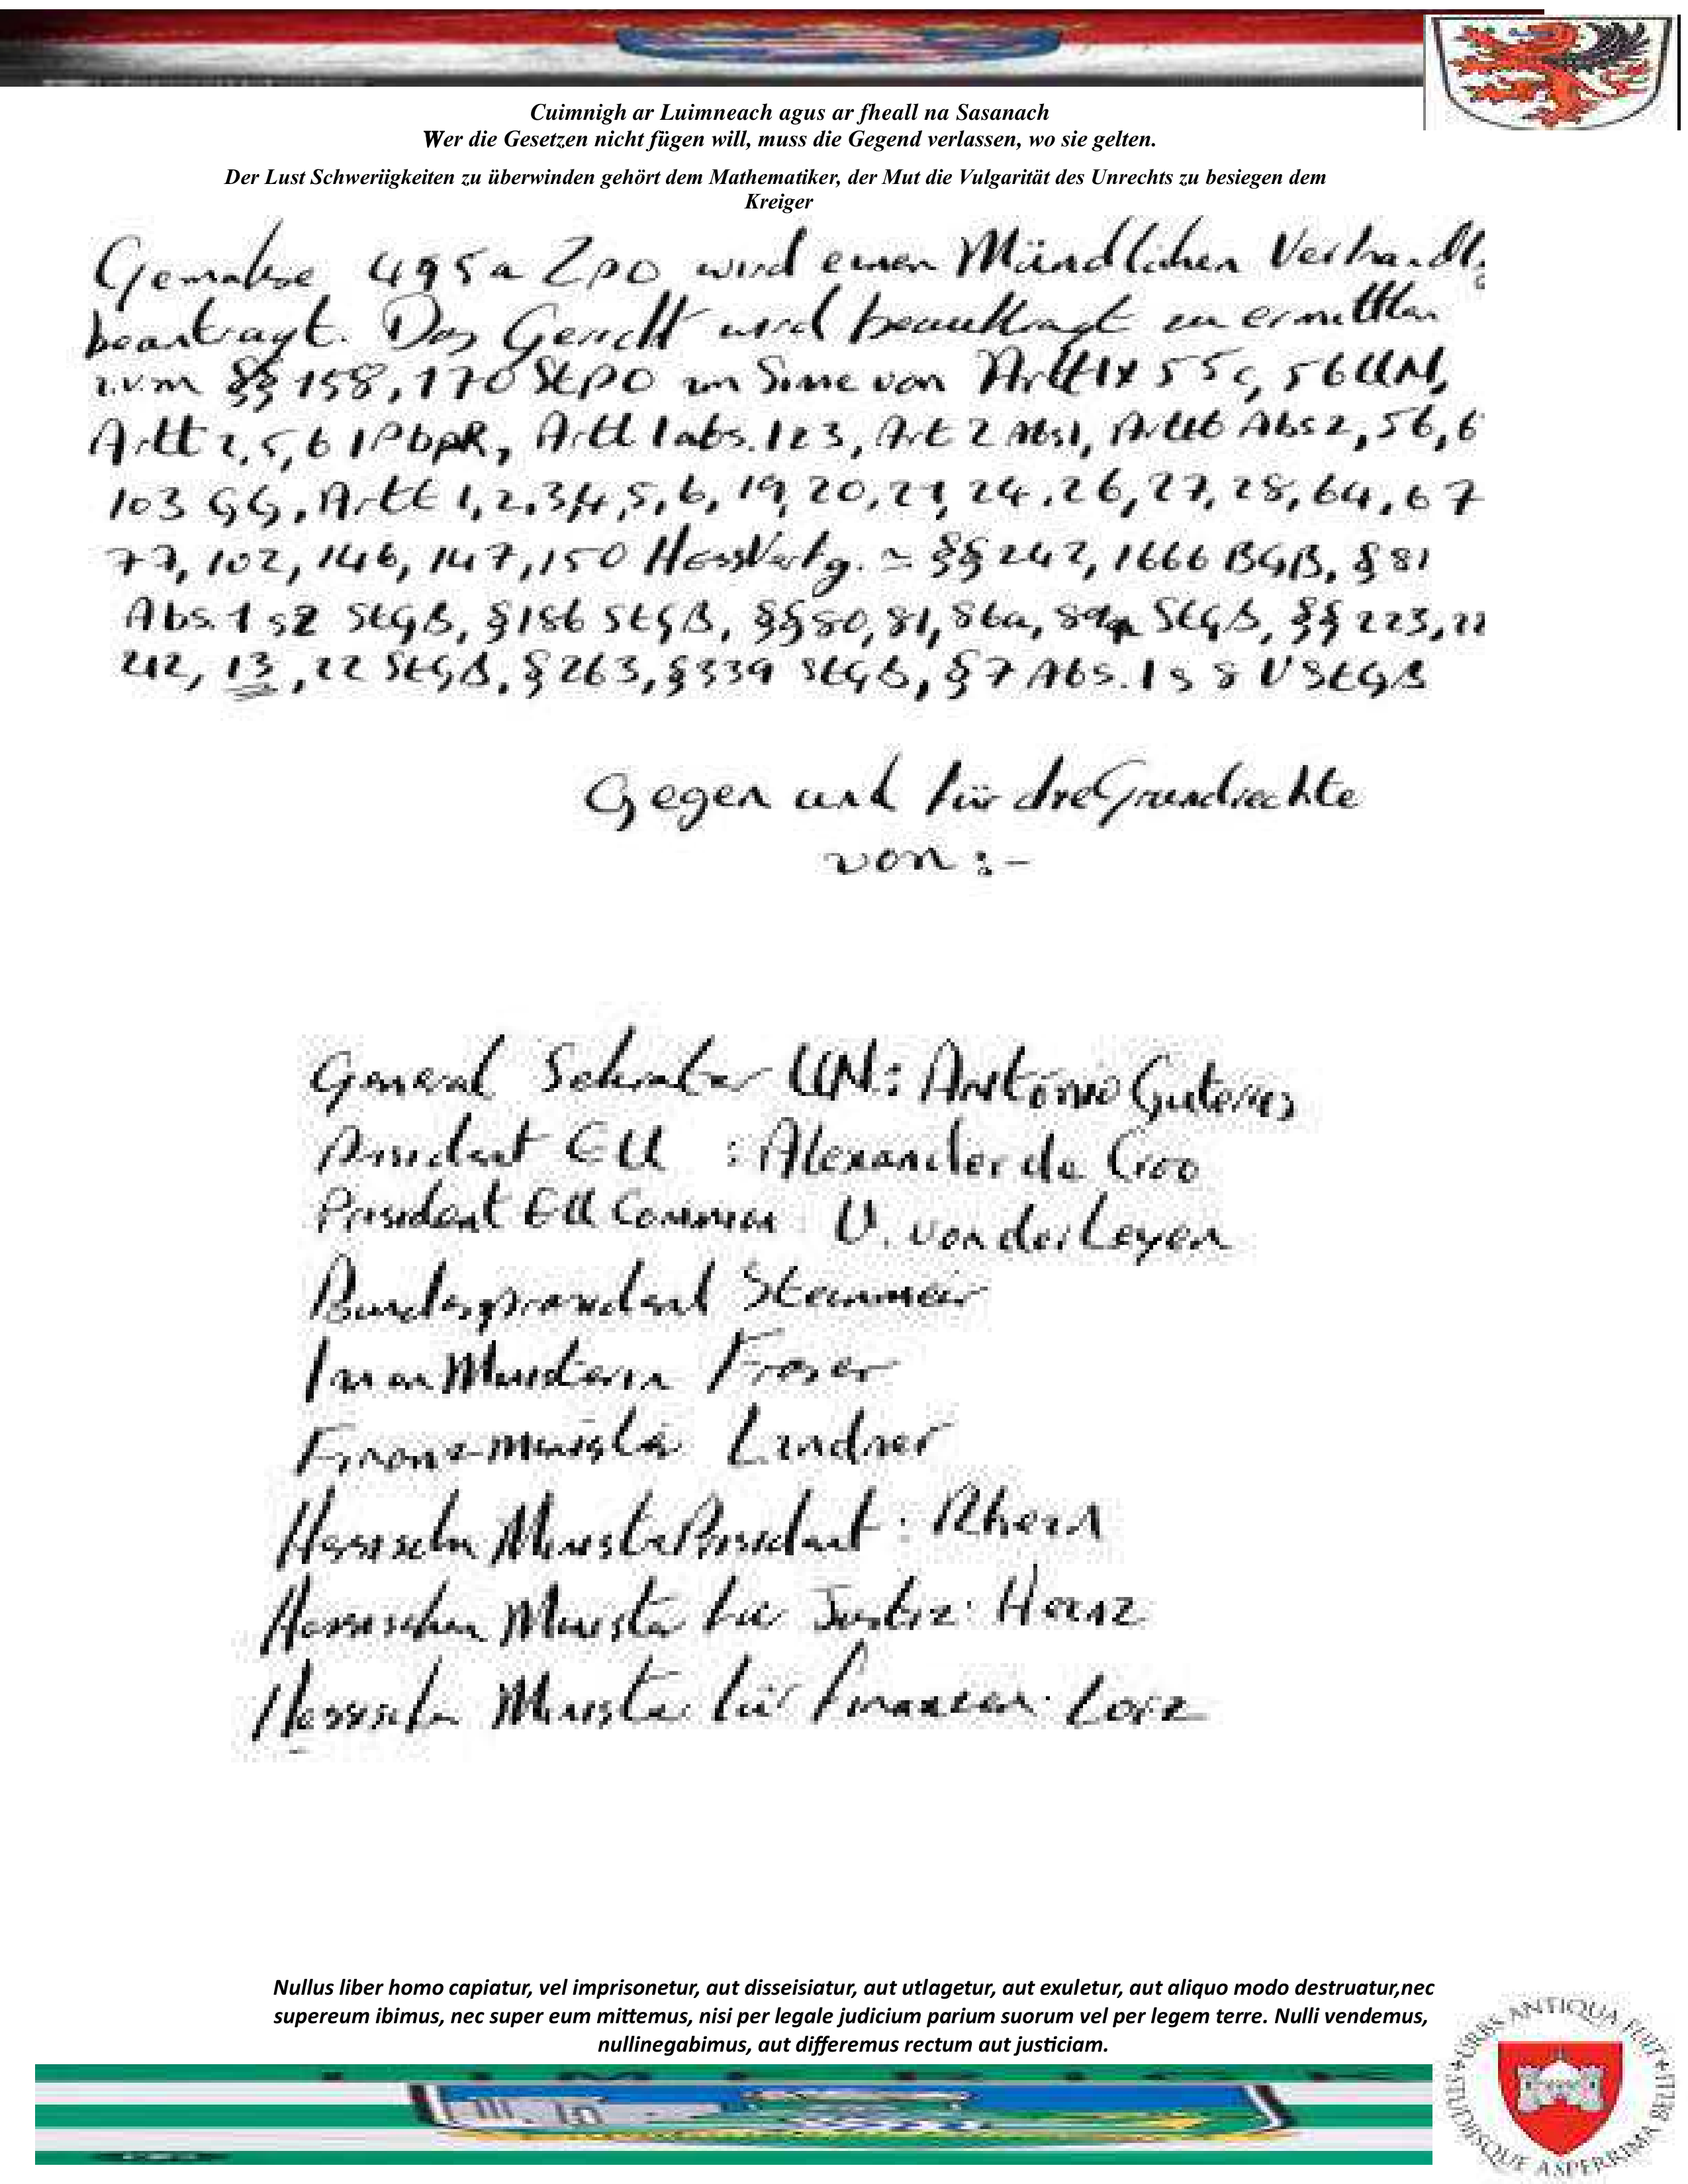 Cuimnigh ar Luimneach agus ar fheall na Sasanach
Wer die Gesetzen nicht fügen will, muss die Gegend verlassen, wo sie gelten.
Der Lust Schweriigkeiten zu überwinden gehört dem Mathematiker, der Mut die Vulgarität des Unrechts zu besiegen dem
Kreiger
495a ZPO wird einen Mündlichen Verhandl
beantragt. Das Gericht wird beauftragt zu ermitteln
i.v.m §§ 158, 170 StPO im Sinne von 55c, 56 UN,
Artt 2, 5, 6 IPbpR, Artt 1 abs. 1 2 3, Art 2 Abs 1, Abs 2, 56, 6
103 GG, Artt 1, 2, 3, 4, 5, 6, 19, 20, 21, 24, 26, 27, 28, 64, 67
77, 102, 146, 147, 150 HessVerfg. ≈ §§ 242, 1666 BGB, § 81
Abs. 1 s 2 StGB, § 186 StGB, §§ 80, 81, 86a, 89a StGB, §§ 223, 22
212, 13, 22 StGB, § 263, § 339 StGB, § 7 Abs. 1 s 8 VStGB
Gegen und für die Grundrechte
von :-
General Sekretar UN: António Guterres
President EU : Alexander de Croo
President EU Commission : U. von der Leyen
Bundespräsident Steinmeir
Innen Ministerin Fraser
Finanz-minister Lindner
Hessischen MinisterPresident : Rhein
Hessischen Minister für Justiz: Heinz
Hessischen Minister für Finanzen: Lorz
Nullus liber homo capiatur, vel imprisonetur, aut disseisiatur, aut utlagetur, aut exuletur, aut aliquo modo destruatur,nec
supereum ibimus, nec super eum mittemus, nisi per legale judicium parium suorum vel per legem terre. Nulli vendemus,
nullinegabimus, aut differemus rectum aut justiciam.
URBS ANTIQUA FUIT STUDIISQUE ASPERRIMA BELLI